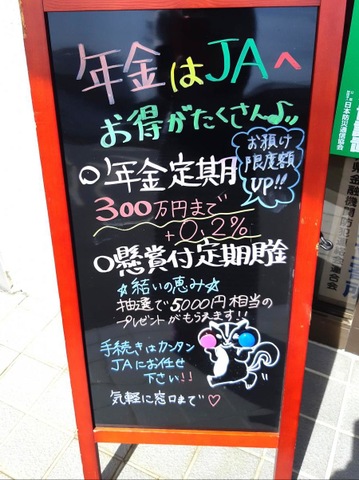 年金はJAへ
お得がたくさん♪
お預け
限度額
UP!!
○年金定期
300万円まで
+0.2%
○懸賞付定期貯金
☆結いの恵み☆
抽選で5,000円相当の
プレゼントがもらえます!!
手続きはカンタン
JAにお任せ
下さい!!
気軽に窓口まで♡
日本防災通信協会